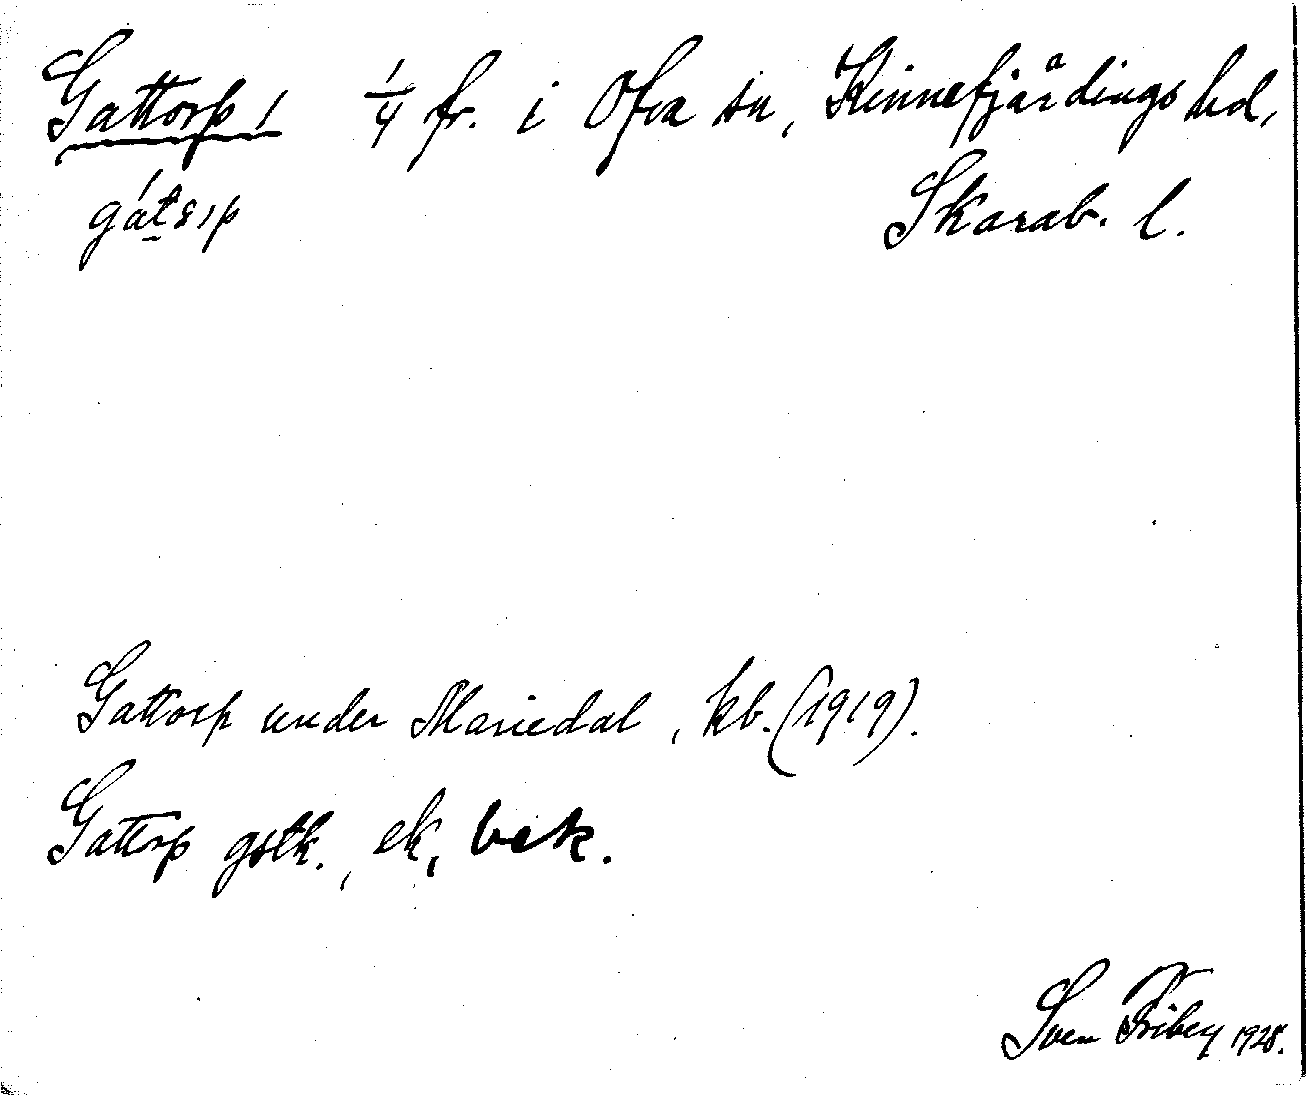 Gattorp 1 1/4 fr. i Ova sn, Kinnefjärdings hd,
Skarab. l.
Gattorp under Mariedal, kb. (1919).
Gattorp gstk., ek, bek.
Sven Friberg 1928.